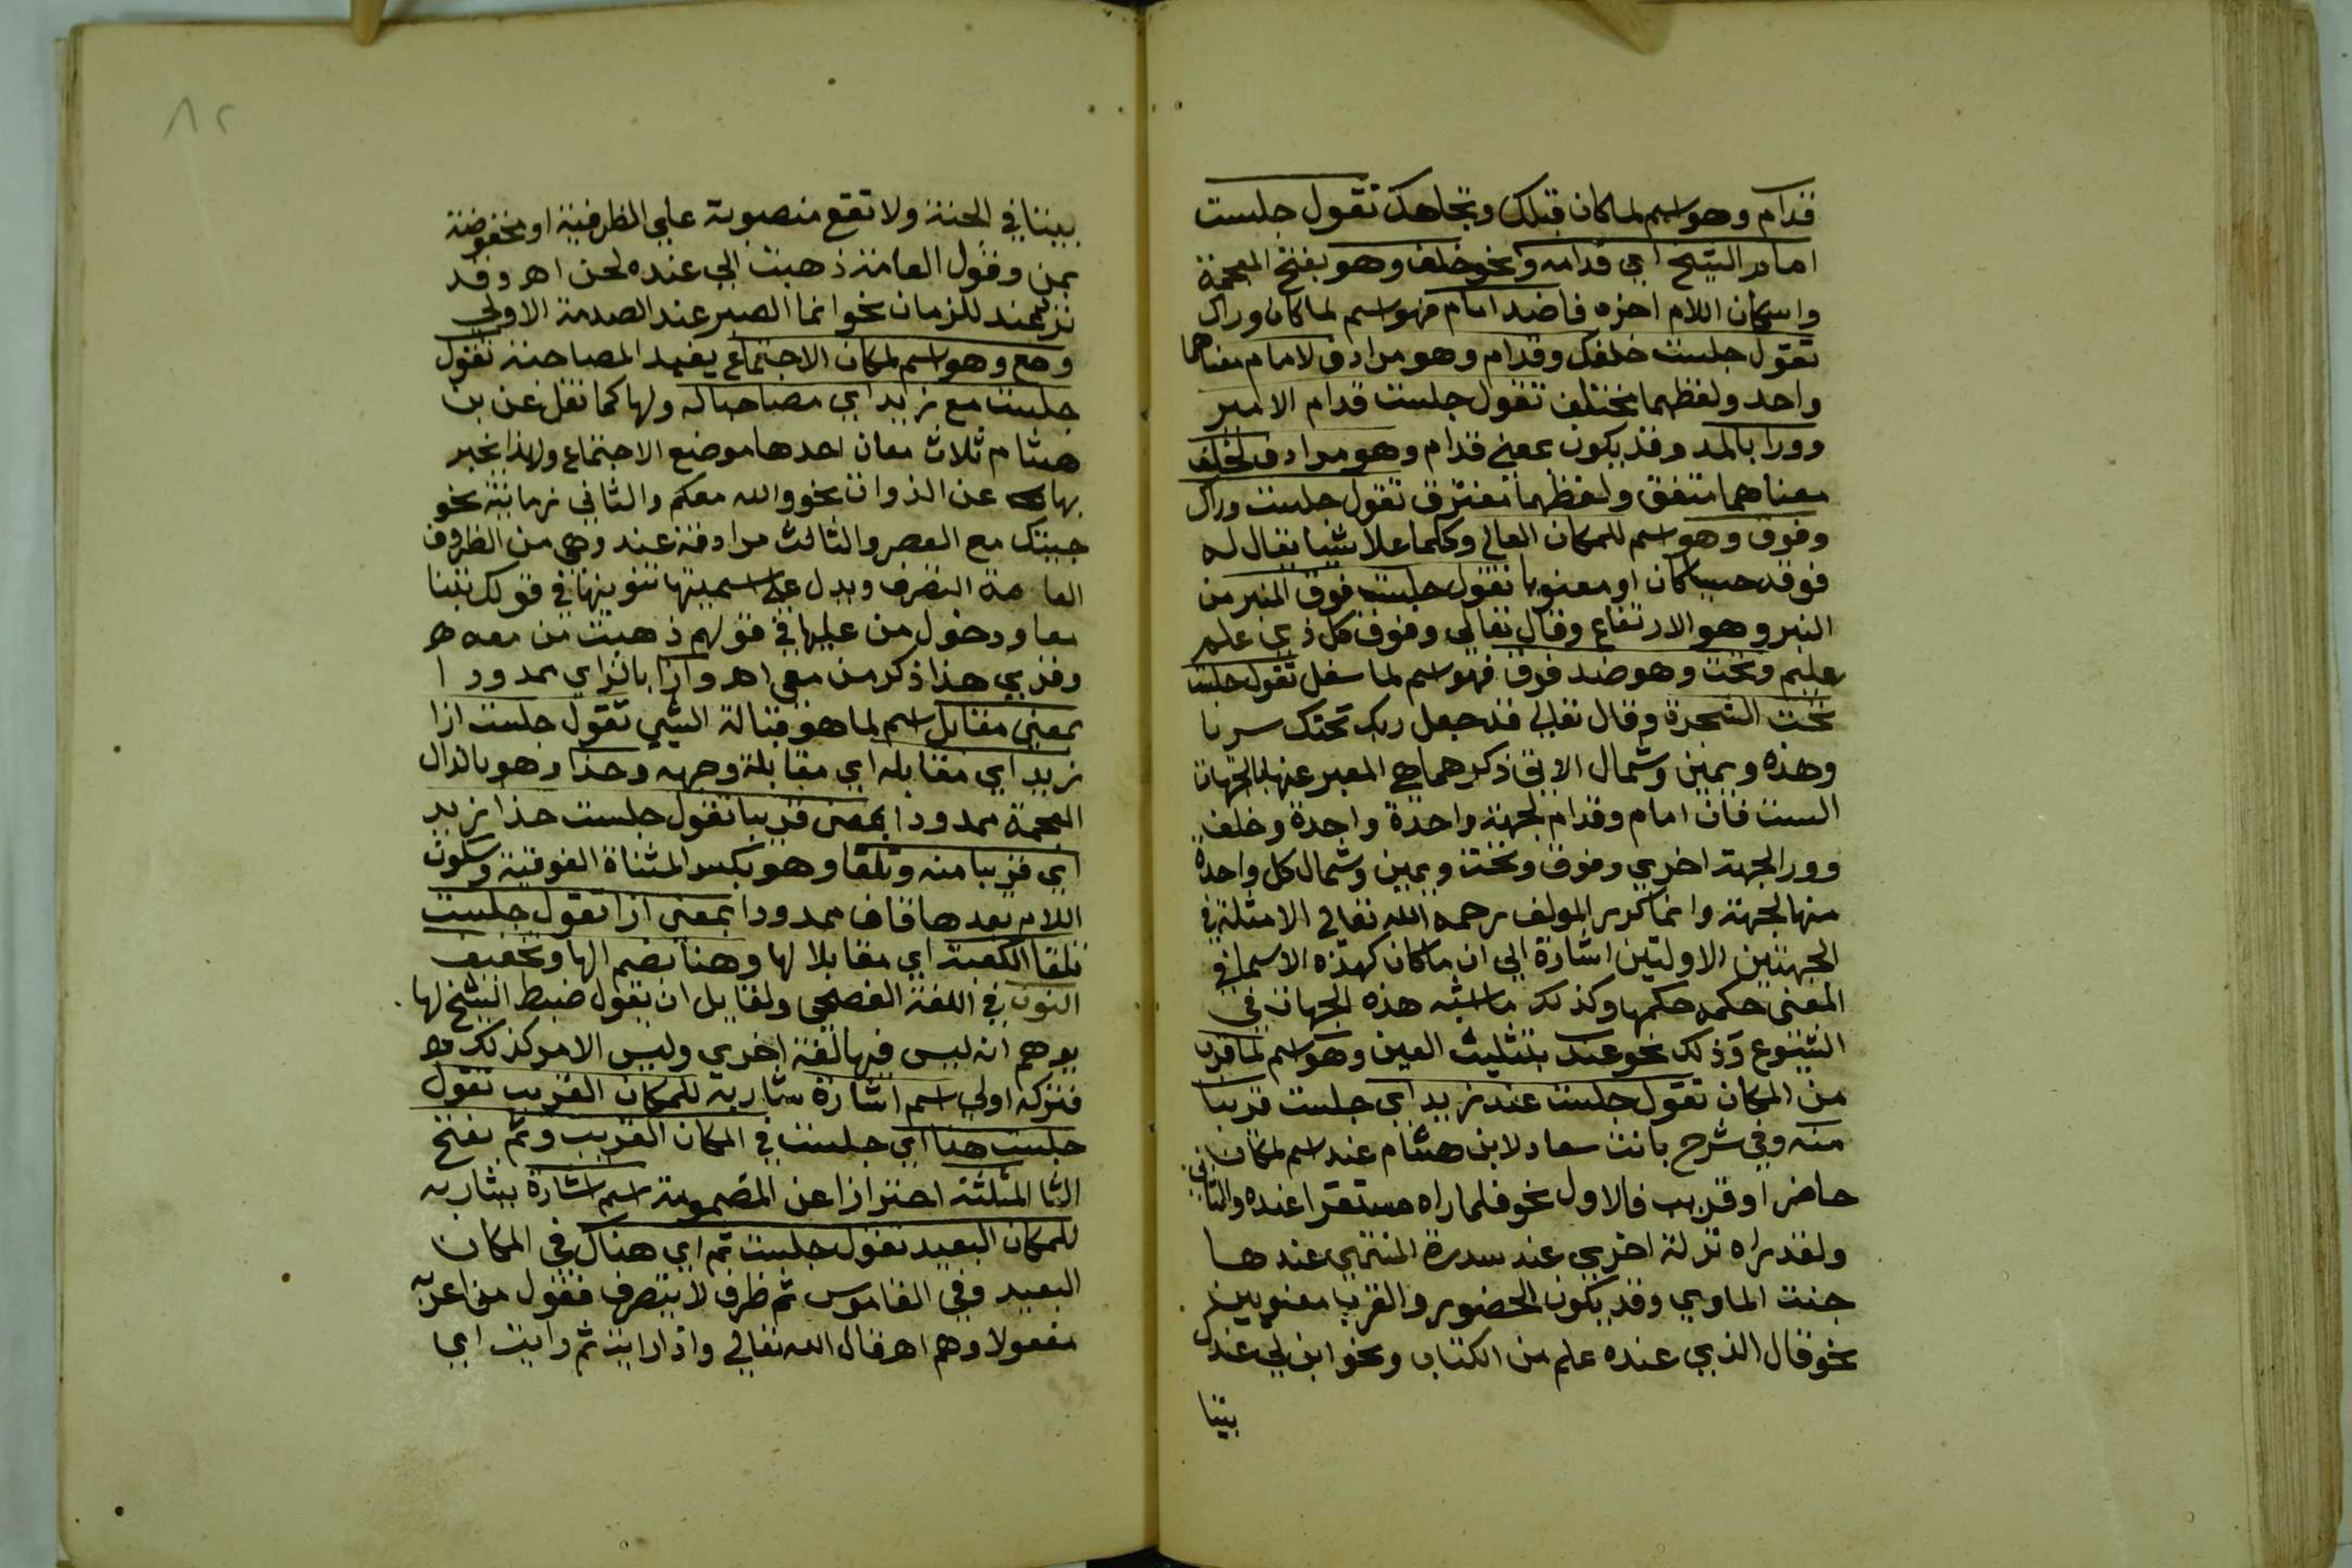 قدام وهو اسم لما كان قبلك وتجاهك تقول جلست
امام الشيخ اي قدامه ونحو خلف وهو بفتح المعجمة
واسكان اللام اخره فا ضد امام فهو اسم لما كان وراك
تقول جلست خلفك وقدام وهو مرادف لامام معناهما
واحد ولفظهما مختلف تقول جلست قدام الامير
وورا بالمد وقد يكون بمعني قدام وهو مرادف لخلف
معناهما متفق ولفظهما مفترق تقول جلست وراك
وفوق وهو اسم للمكان العالي وكلما علا شيا يقال له
فوقه حسيا كان او معنويا تقول جلست فوق المنبر من
النبر وهو الارتفاع وقال تعالي وفوق كل ذي علم
عليم وتحت وهو ضد فوق فهو اسم لما سفل تقول جلست
تحت الشجرة وقال تعالي قد جعل ربك تحتك سريا
وهذه ويمين وشمال الاتي ذكرهما هي المعبر عنها بالجهات
الست فان امام وقدام لجهة واحدة واحدة وخلف
وورا لجهة اخري وفوق وتحت ويمين وشمال كل واحدة
منها لجهة وانما كرر المولف رحمه الله تعالي الامثلة في
الجهتين الاولتين اشارة الي ان ما كان كهذه الاسما في
المعني حكمه حكمها وكذلك ما اشبه هذه الجهات في
الشيوع وذلك نحو عند بتثليث العين وهو اسم لما قرب
من المكان تقول جلست عند زيد اي جلست قريبا
منه وفي شرح بانت سعاد لابن هشام عند اسم لمكان
حاضر او قريب فالاول نحو فلما راه مستقرا عنده والثاني
ولقد راه نزلة اخري عند سدرة المنتهي عندها
جنت الماوي وقد يكون الحضور والقرب معنويين
نحو قال الذي عنده علم من الكتاب ونحو ابن لي عندك
بيتا
بيتا في الجنة ولا تقع منصوبة علي الظرفية او مخفوضة
بمن وقول العامة ذهبت الي عنده لحن اهـ وقد
ترد عند للزمان نحو انما الصبر عند الصدمة الاولي
ومع وهو اسم لمكان الاجتماع يفيد المصاحبة تقول
جلست مع زيد اي مصاحبا له ولها كما نقل عن بن
هشام ثلاث معان احدها موضع الاجتماع ولهذا يخبر
بها عن الذوات نحو والله معكم والثاني زمانية نحو
جيتك مع العصر والثالث مرادفة عند وهي من الظروف
العادمة التصرف ويدل علي اسميتها تنوينها في قولك بنينا
معا ودخول من عليها في قولهم ذهبت من معه
وقري هذا ذكر من معي اهـ وازا بالزاي ممدودا
بمعني مقابل اسم لما هو قبالة الشي تقول جلست ازا
زيد اي مقابله اي مقابلة وجهه وحذا وهو بالذال
المعجمة ممدودا بمعني قريبا تقول جلست حذا زيد
اي قريبا منه وتلقا وهو بكسر المثناة الفوقية وسكون
اللام بعدها قاف ممدودا بمعني ازا تقول جلست
تلقا الكعبة اي مقابلا لها وهنا بضم الها وتخفيف
النون في اللغة الفصحي ولقايل ان يقول ضبط الشيخ لها
يوهم انه ليس فيها لغة اخري وليس الامر كذلك
فتركه اولي اسم اشارة يشار به للمكان القريب تقول
جلست هنا اي جلست في المكان القريب وثم بفتح
الثا المثلثة احترازا عن المضمومة اسم اشارة يشار به
للمكان البعيد تقول جلست ثم اي هناك في المكان
البعيد وفي القاموس ثم ظرف لا يتصرف فقول من اعربه
مفعولا وهم اهـ قال الله تعالي واذا رايت ثم رايت اي
٨٢